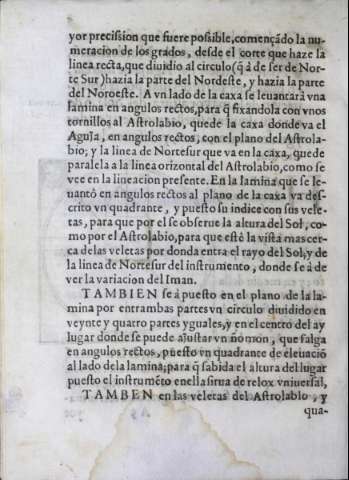 yor precission que fuere possible, començãdo la nu-
meracion de los grados, desde el corte que haze la
linea recta, que diuidio al circulo (q̃ à de ser de Nor-
te Sur) hazia la parte del Nordeste, y hazia la parte
del Noroeste. A vn lado de la caxa se leuantarà vna
lamina en angulos rectos, para q̃ fixandola con vnos
tornillos al Astrolabio, quede la caxa donde va el
Aguja, en angulos rectos, con el plano del Astrola-
bio; y la linea de Nortesur que va en la caxa, quede
paralela a la linea orizontal del Astrolabio, como se
vee en la lineacion presente. En la lamina que se le-
uantò en angulos rectos al plano de la caxa va des-
crito vn quadrante, y puesto su indice con sus vele-
tas, para que por el se obserue la altura del Sol, co-
mo por el Astrolabio, para que estè la vista mas cer-
ca de las veletas por donda entra el rayo del Sol, y de
la linea de Nortesur del instrumento, donde se à de
ver la variacion del Iman.
TAMBIEN se à puesto en el plano de la la-
mina por entrambas partes vn circulo diuidido en
veynte y quatro partes yguales, y en el centro del ay
lugar donde se puede ajustar vn ñomon, que salga
en angulos rectos, puesto vn quadrante de eleuaciõ
al lado de la lamina; para q̃ sabida el altura del lugar
puesto el instrumẽto en ella sirua de relox vniuersal,
TAMBEN en las veletas del Astrolabio, y
qua-